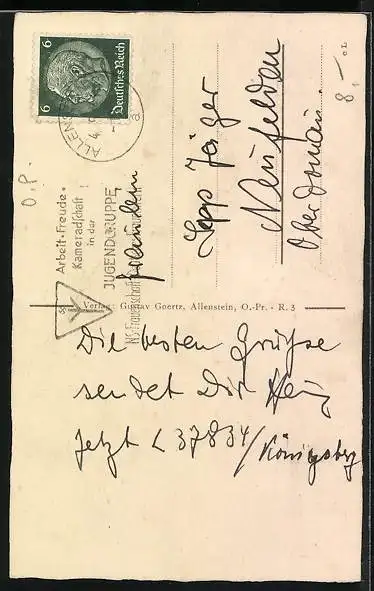 6 6
Deutsches Reich
ALLENSTEIN
Arbeit · Freude ·
Kameradschaft
in der
JUGENDGRUPPE
NS-Frauenschaft
Sepp Jäger
Neufelden
Oberdonau.
O.P.
8,-
Verlag: Gustav Goertz, Allenstein, O.-Pr. - R. 3
Die besten Grüße
sendet Dir
Jetzt L 37834/Königsberg